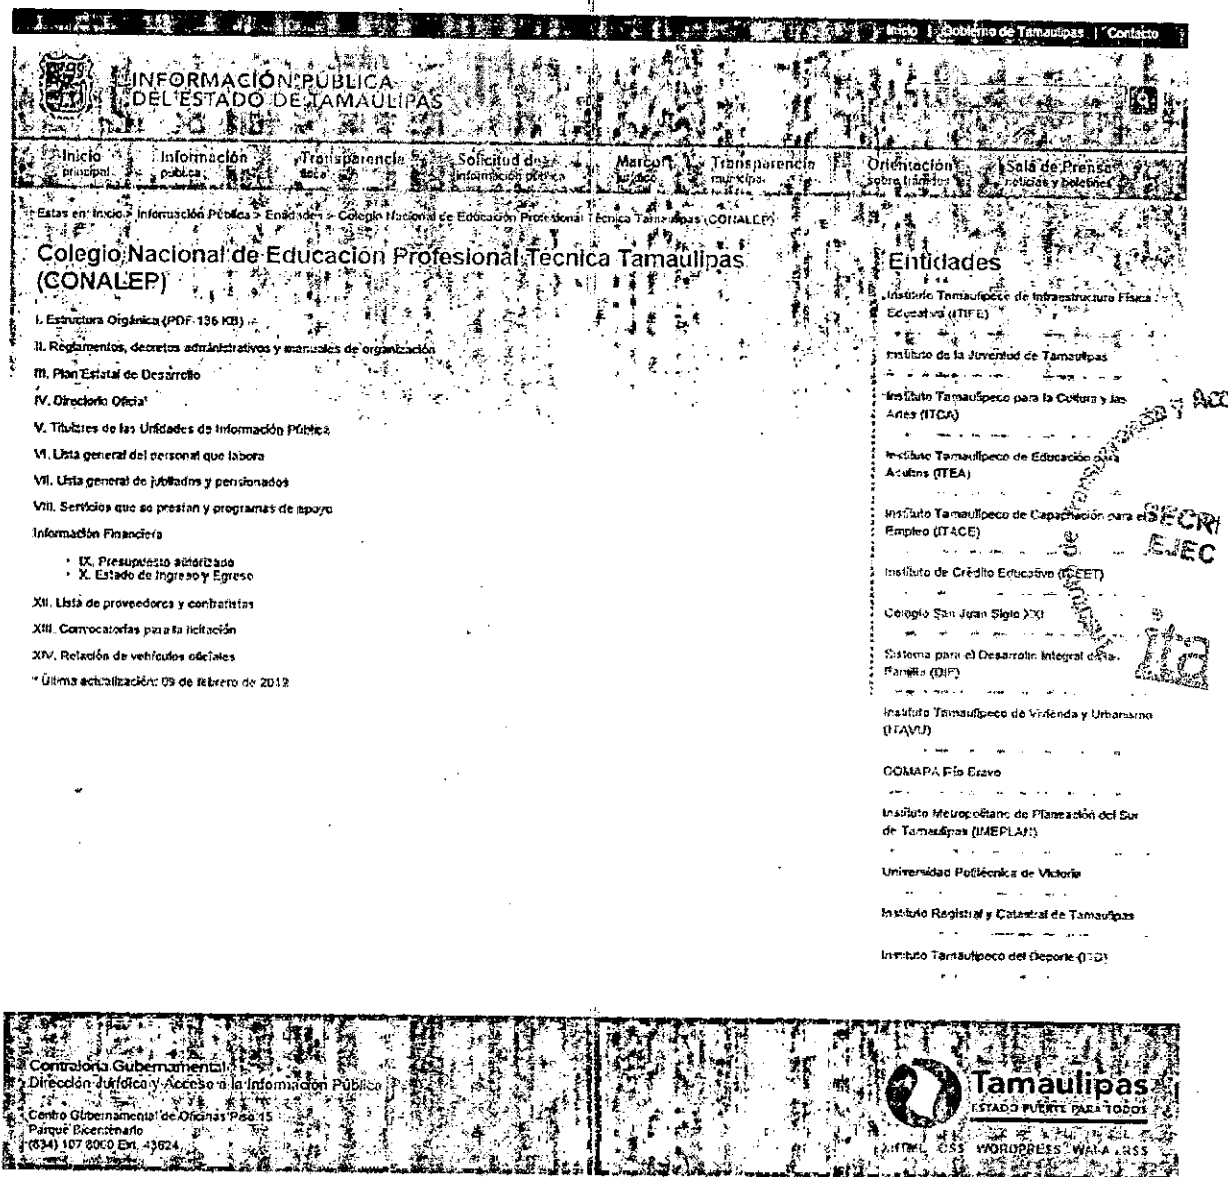 Inicio | Gobierno de Tamaulipas | Contacto
INFORMACIÓN PÚBLICA
DEL ESTADO DE TAMAULIPAS
Inicio
principal
Información
pública
Transparencia
Solicitud de
información pública
Marco
jurídico
Transparencia
municipal
Orientación
sobre trámites
Sala de Prensa
noticias y boletines
Estas en: Inicio > Información Pública > Entidades > Colegio Nacional de Educación Profesional Técnica Tamaulipas (CONALEP)
Colegio Nacional de Educación Profesional Técnica Tamaulipas
(CONALEP)
I. Estructura Orgánica (PDF-136 KB)
II. Reglamentos, decretos administrativos y manuales de organización
III. Plan Estatal de Desarrollo
IV. Directorio Oficial
V. Titulares de las Unidades de Información Pública
VI. Lista general del personal que labora
VII. Lista general de jubilados y pensionados
VIII. Servicios que se prestan y programas de apoyo
Información Financiera
• IX. Presupuesto autorizado
• X. Estado de Ingreso y Egreso
XII. Lista de proveedores y contratistas
XIII. Convocatorias para la licitación
XIV. Relación de vehículos oficiales
* Última actualización: 09 de febrero de 2012
Entidades
Instituto Tamaulipeco de Infraestructura Física
Educativa (ITIFE)
Instituto de la Juventud de Tamaulipas
Instituto Tamaulipeco para la Cultura y las
Artes (ITCA)
Instituto Tamaulipeco de Educación para
Adultos (ITEA)
Instituto Tamaulipeco de Capacitación para el
Empleo (ITACE)
Instituto de Crédito Educativo (ICEET)
Colegio San Juan Siglo XXI
Sistema para el Desarrollo Integral de la
Familia (DIF)
Instituto Tamaulipeco de Vivienda y Urbanismo
(ITAVU)
COMAPA Río Bravo
Instituto Metropolitano de Planeación del Sur
de Tamaulipas (IMEPLAN)
Universidad Politécnica de Victoria
Instituto Registral y Catastral de Tamaulipas
Instituto Tamaulipeco del Deporte (ITD)
de Transparencia y ACC
SECRE
EJEC
ita
Contraloría Gubernamental
Dirección Jurídica y Acceso a la Información Pública
Centro Gubernamental de Oficinas Piso 15
Parque Bicentenario
(834) 107 8000 Ext. 43624
Tamaulipas
ESTADO FUERTE PARA TODOS
XHTML CSS WORDPRESS WAI-A RSS